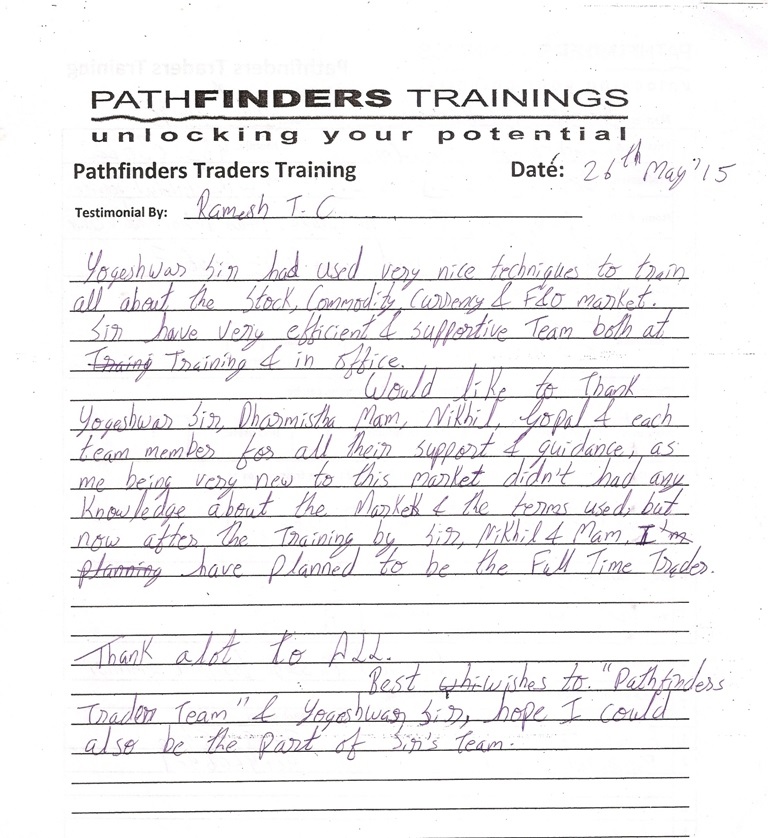 PATHFINDERS TRAININGS
unlocking your potential
Pathfinders Traders Training Date: 26th May'15
Testimonial By: Ramesh T. C
Yogeshwar Sir had used very nice techniques to train
all about the Stock, Commodity, Currency & F&O market.
Sir have very efficient & supportive Team both at
Traing Training & in office.
Would like to Thank
Yogeshwar Sir, Dharmistha Mam, Nikhil, Gopal & each
team member for all their support & guidance, as
me being very new to this market didn't had any
knowledge about the Market & the terms used, but
now after the Training by Sir, Nikhil & Mam, I'm
planning have planned to be the Full Time Trader.
Thank alot to ALL.
Best whi wishes to "Pathfinders
Trader Team" & Yogeshwar Sir, hope I could
also be the Part of Sir's Team.